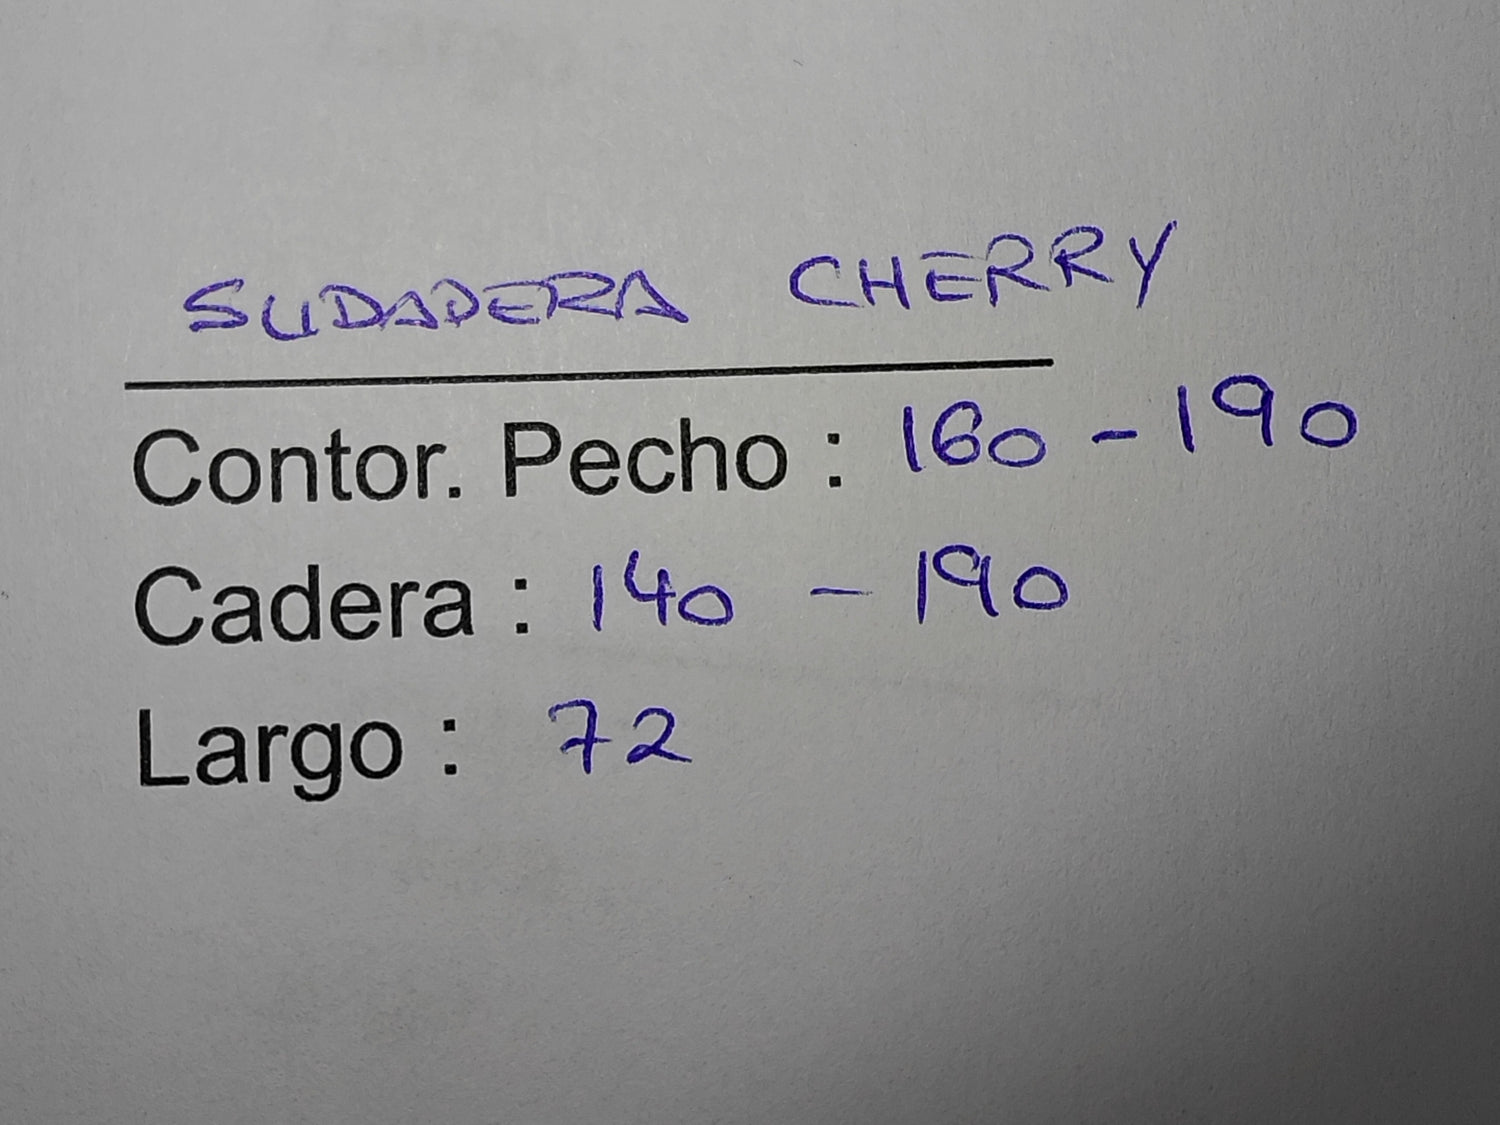 SUDADERA CHERRY
Contor. Pecho : 160 - 190
Cadera : 140 - 190
Largo : 72